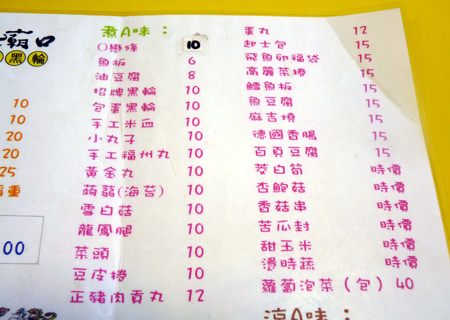 廟口
黑輪
10
10
20
20
25
重
00
煮A味：
〇戀條 10
魚板 6
油豆腐 8
招牌黑輪 10
包蛋黑輪 10
手工米血 10
小丸子 10
手工福州丸 10
黃金丸 10
蒟蒻(海苔) 10
雪白菇 10
龍鳳腿 10
菜頭 10
豆皮捲 10
正豬肉貢丸 12
蛋丸 12
起士包 15
飛魚卵福袋 15
高麗菜捲 15
鱈魚板 15
魚豆腐 15
麻吉燒 15
德國香腸 15
百頁豆腐 15
茭白筍 時價
杏鮑菇 時價
香菇串 時價
苦瓜封 時價
甜玉米 時價
燙時蔬 時價
蘿蔔泡菜（包）40
涼A味：